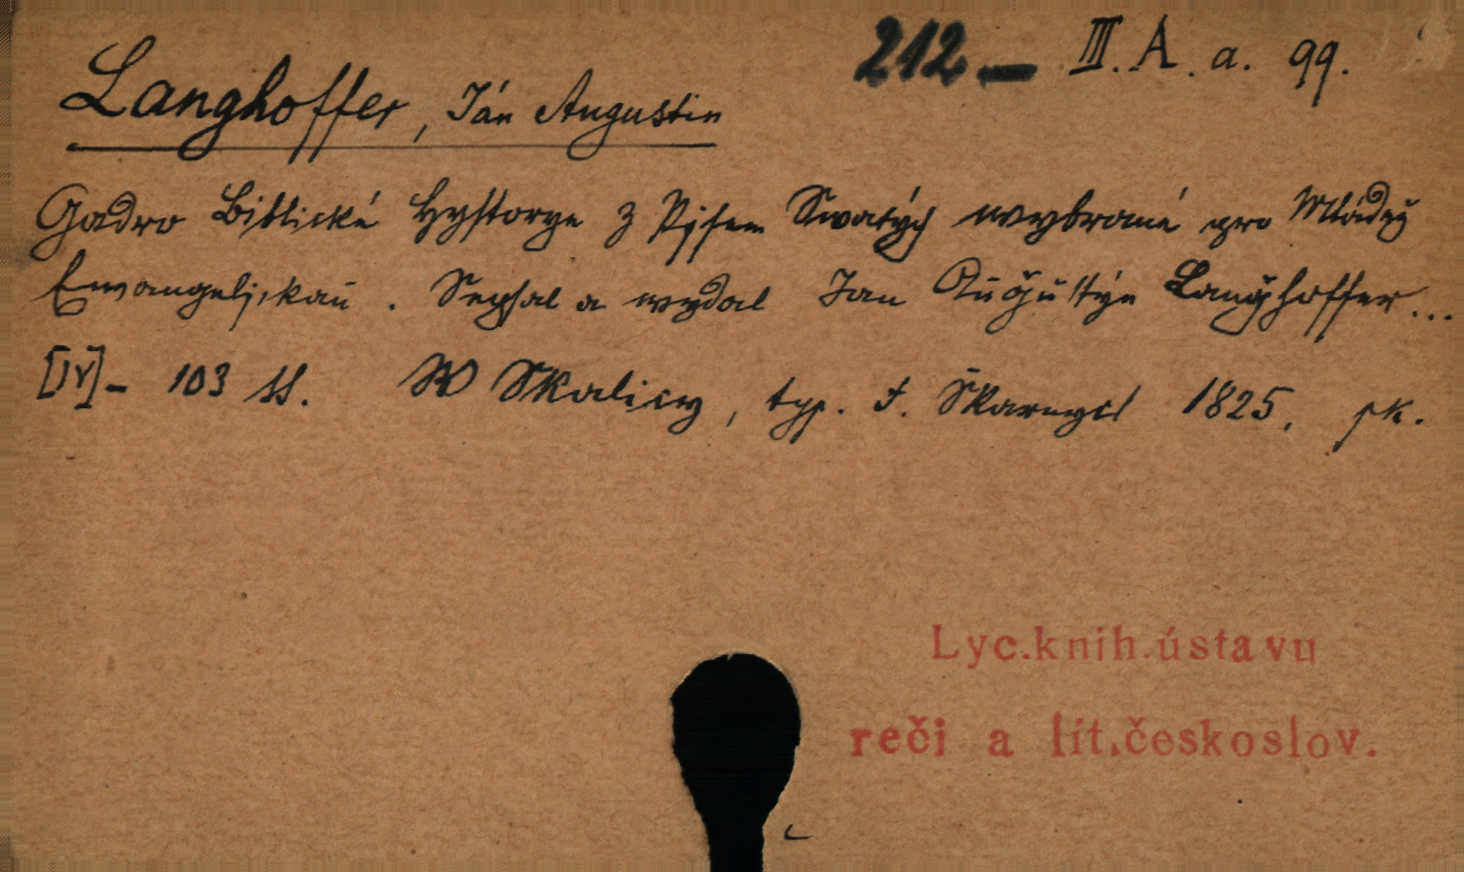 212 — III. A. a. 99.
Langhoffer, Ján Augustin
Gadro Biblické Hystorye z Pjsem Swatých wybrané pro Mládež
Ewangeljckau. Sepsal a wydal Jan Augustýn Langhoffer...
[IV] - 103 ss. W Skalicy, typ. F. Škarnycl 1825. pk.
Lyc. knih. ústavu
reči a lit. českoslov.